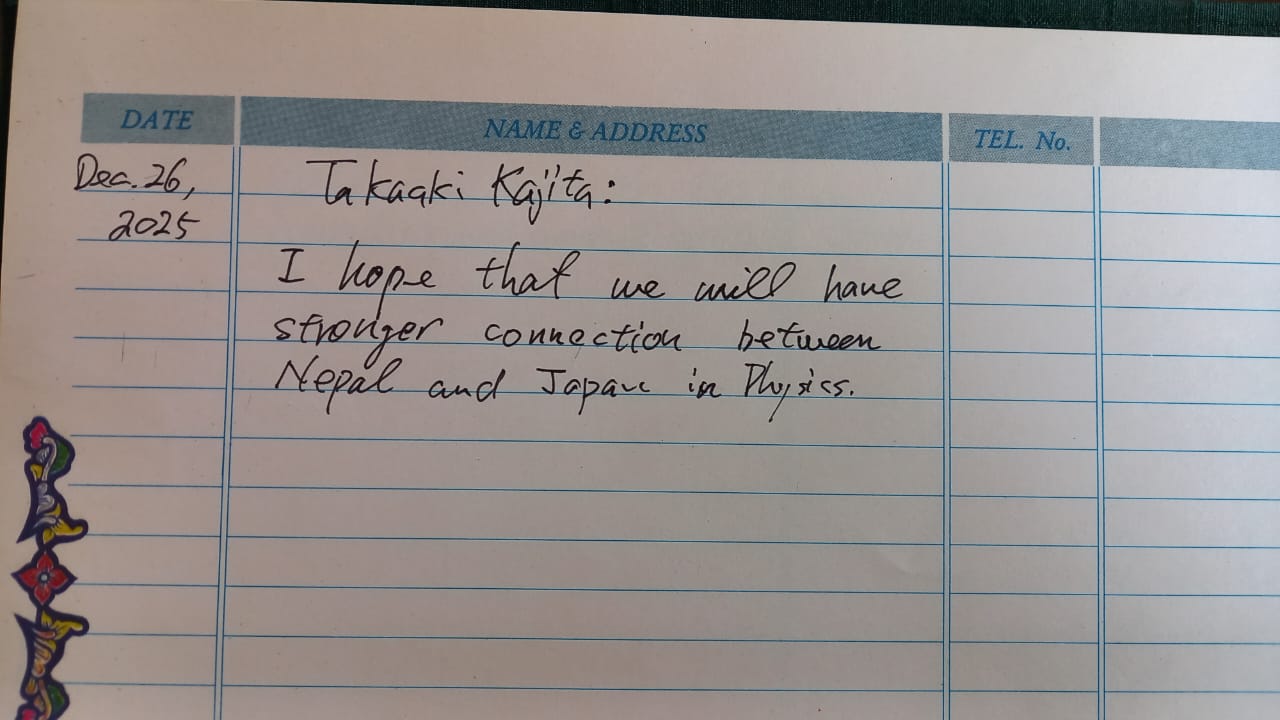 DATE NAME & ADDRESS TEL. No.
Dec. 26, Takaaki Kajita:
2025
I hope that we will have
stronger connection between
Nepal and Japan in Physics.